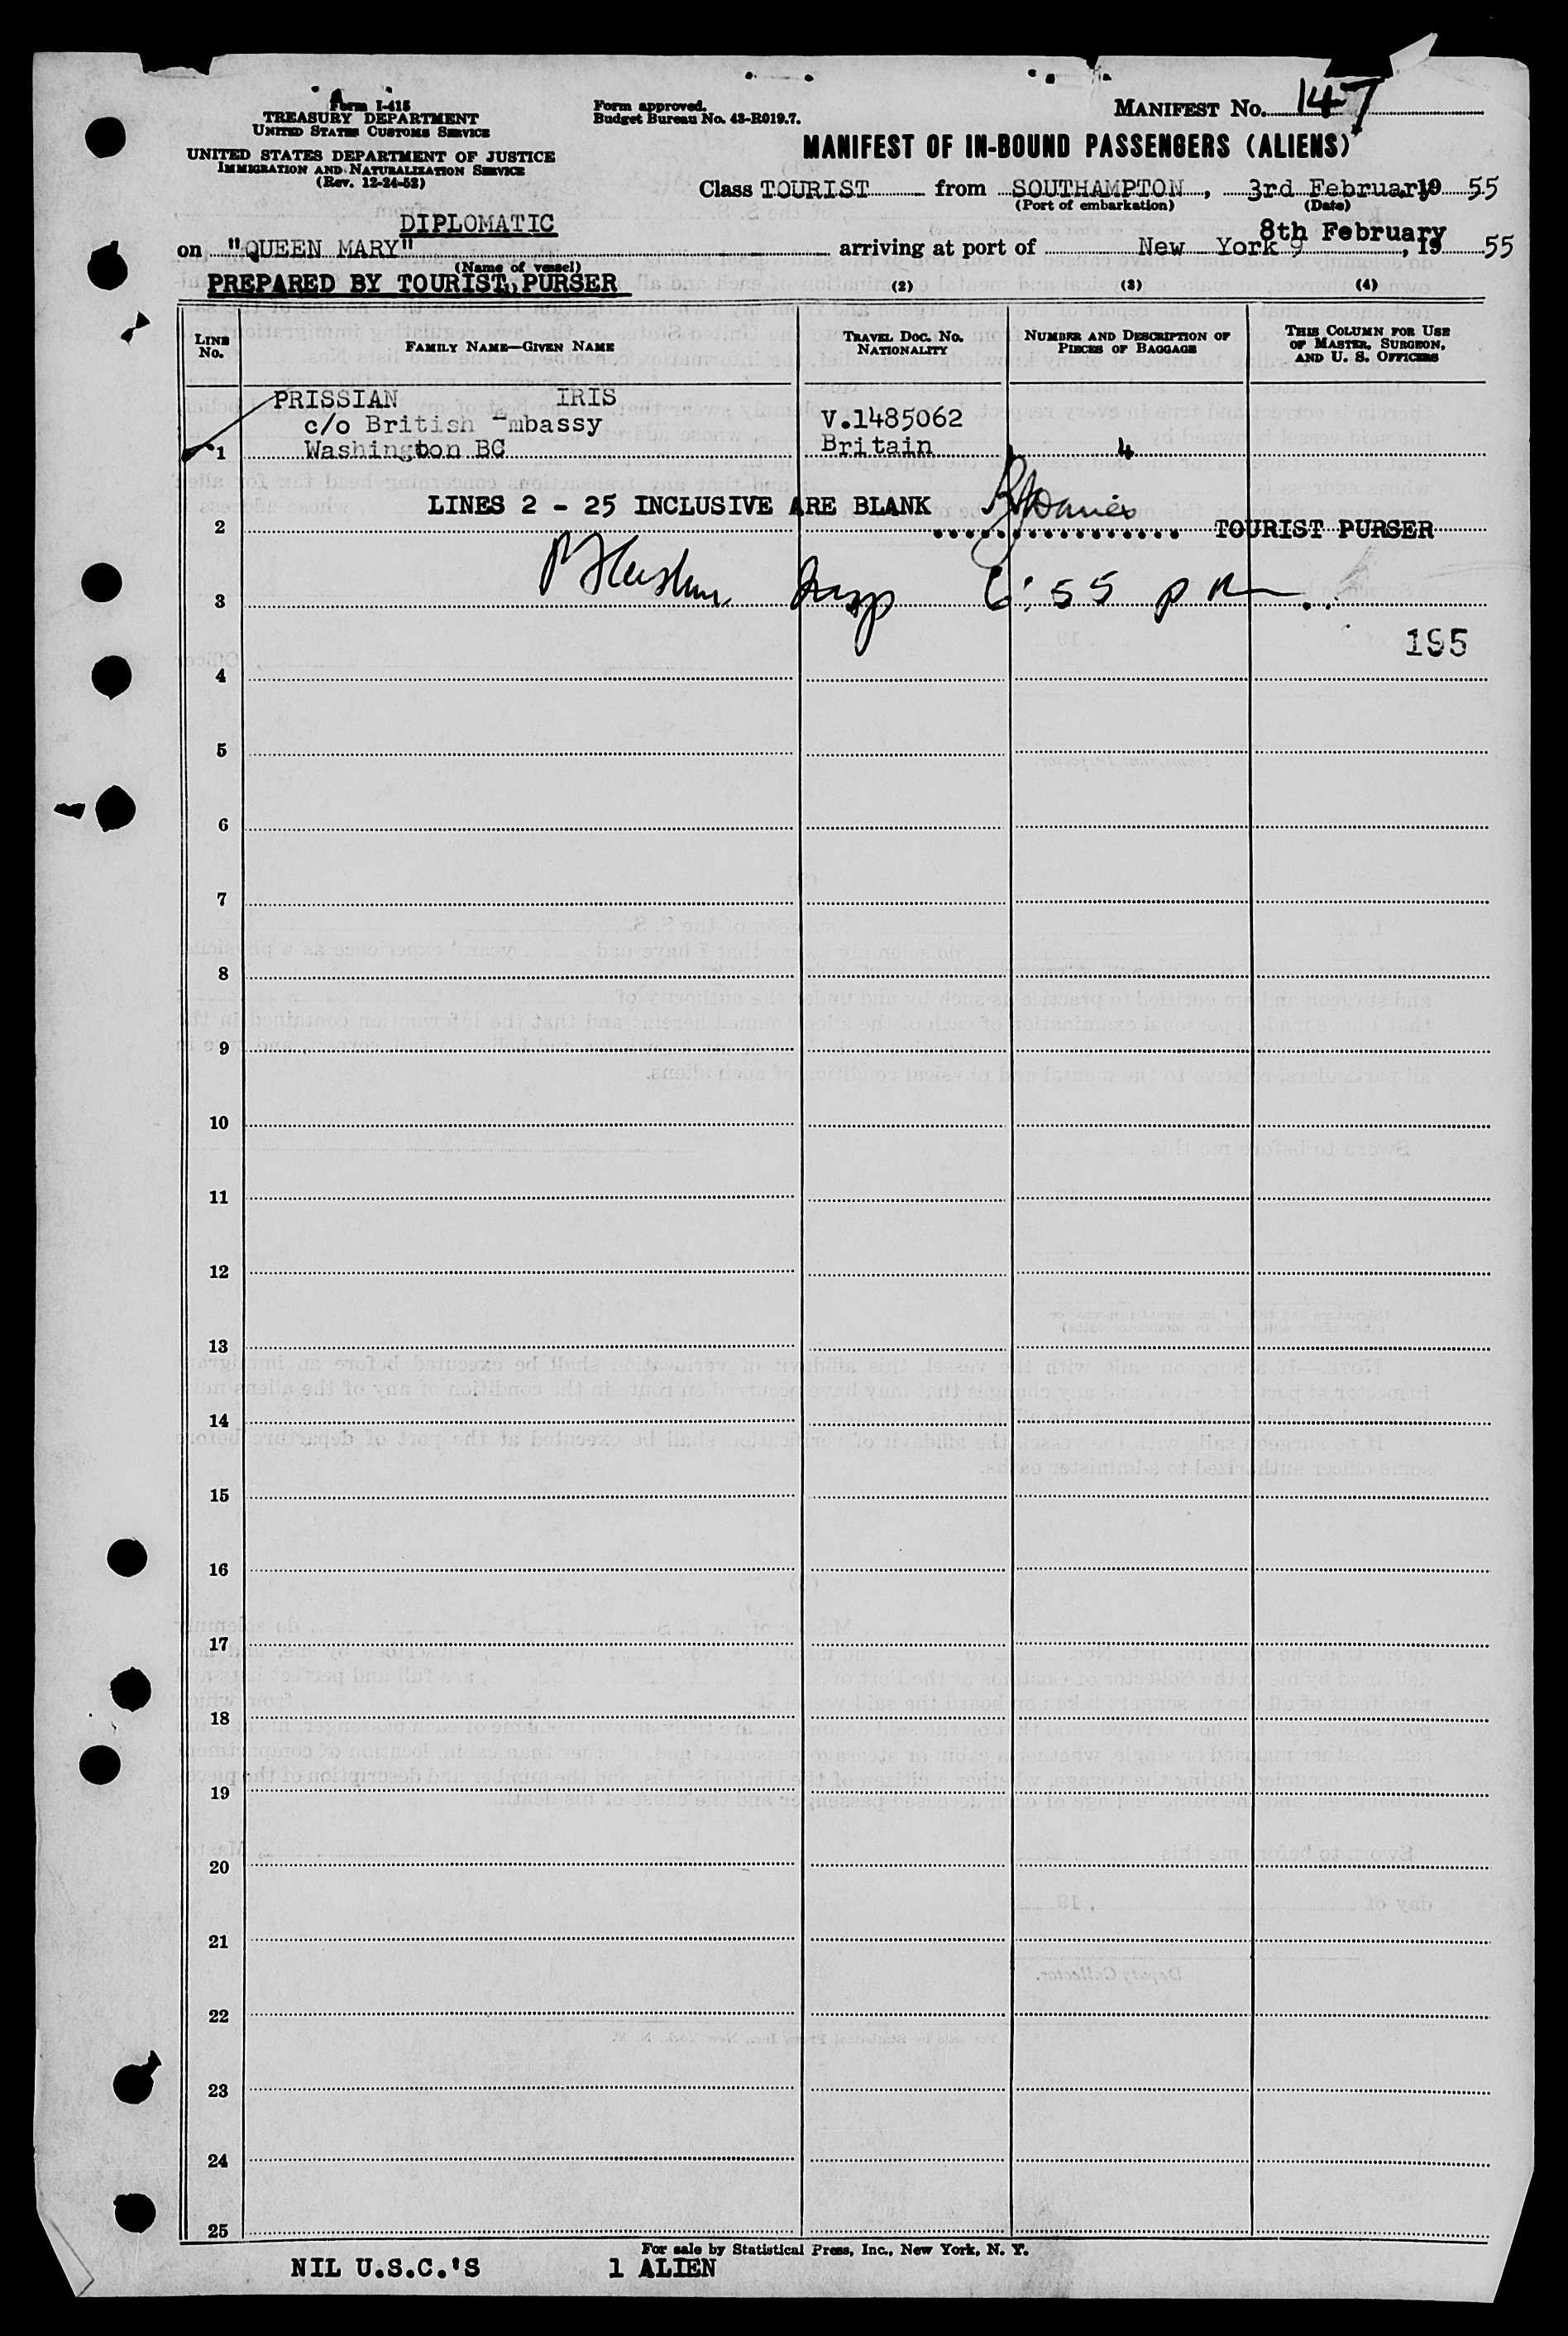 Form I-415
TREASURY DEPARTMENT
UNITED STATES CUSTOMS SERVICE
UNITED STATES DEPARTMENT OF JUSTICE
IMMIGRATION AND NATURALIZATION SERVICE
(Rev. 12-24-52)
Form approved.
Budget Bureau No. 43-R019.7.
MANIFEST No. 147
MANIFEST OF IN-BOUND PASSENGERS (ALIENS)
Class TOURIST from SOUTHAMPTON, 3rd February 19 55
(Port of embarkation) (Date)
DIPLOMATIC
8th February
on "QUEEN MARY" arriving at port of New York 9, 19 55
(Name of vessel)
PREPARED BY TOURIST PURSER (2) (3) (4)
LINE No. FAMILY NAME—GIVEN NAME TRAVEL DOC. No. NATIONALITY NUMBER AND DESCRIPTION OF PIECES OF BAGGAGE THIS COLUMN FOR USE OF MASTER, SURGEON, AND U. S. OFFICERS
PRISSIAN IRIS
c/o British Embassy V.1485062
1 Washington BC Britain 4
LINES 2 - 25 INCLUSIVE ARE BLANK
2 TOURIST PURSER
3 6:55 pm
195
4
5
6
7
8
9
10
11
12
13
14
15
16
17
18
19
20
21
22
23
24
25
For sale by Statistical Press, Inc., New York, N. Y.
NIL U.S.C.'S 1 ALIEN